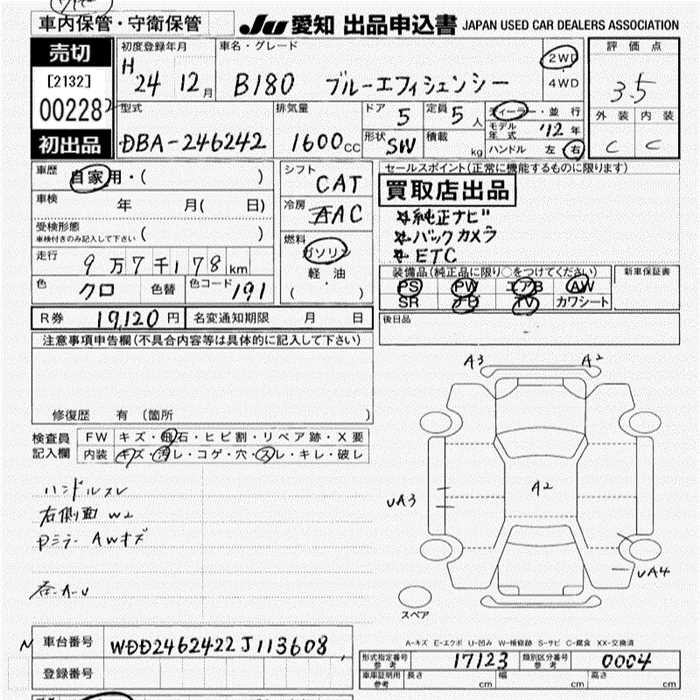 車内保管・守衛保管
JU 愛知 出品申込書 JAPAN USED CAR DEALERS ASSOCIATION
売切
[2132]
00228
初出品
初度登録年月
H 24 12月
車名・グレード
B180 ブルーエフィシェンシー
2WD
・
4WD
評価点
3.5
外装 内装
C C
型式
DBA-246242
排気量
1600cc
ドア 5
定員 5人
形状 SW
積載 kg
ディーラー・並行
モデル年式 '12年
ハンドル 左 右
車歴 自家用・( )
車検 年 月( 日)
受検形態
車検付きのみ記入して下さい ( )
走行 9万7千178km
色 クロ 色替 色コード 191
シフト CAT
冷房 AAC
燃料
ガソリン
軽油
( ・ )
セールスポイント(正常に機能するものに限ります)
買取店出品
※純正ナビ
※バックカメラ
※ETC
装備品(純正品に限り○をつけてください)
新車保証書
PS PW エアB AW
SR ナビ TV カワシート
後日品
R券 19,120円 名変通知期限 月 日
注意事項申告欄(不具合内容等は具体的に記入して下さい)
修復歴 有(箇所 )
検査員
記入欄
FW キズ・飛石・ヒビ割・リペア跡・X要
内装 キズ・汚レ・コゲ・穴・スレ・キレ・破レ
ハンドルスレ
右側面 W2
Pミラー AWキズ
A3 A2
UA3
A2
UA4
スペア
A-キズ E-エクボ U-凹み W-補修跡 S-サビ C-腐食 XX-交換済
車台番号 WDD2462422J113608
登録番号
形式指定番号
参考
17123
類別区分番号
参考
0004
車庫証明用
参考
長さ cm 幅 cm 高さ cm